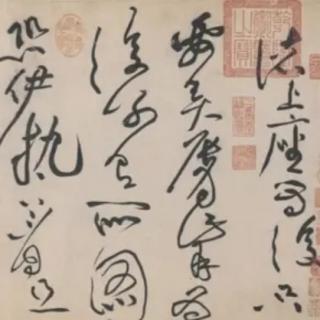 諸上座為復只
要弄脣觜為
復別有所圖
恐伊執著且